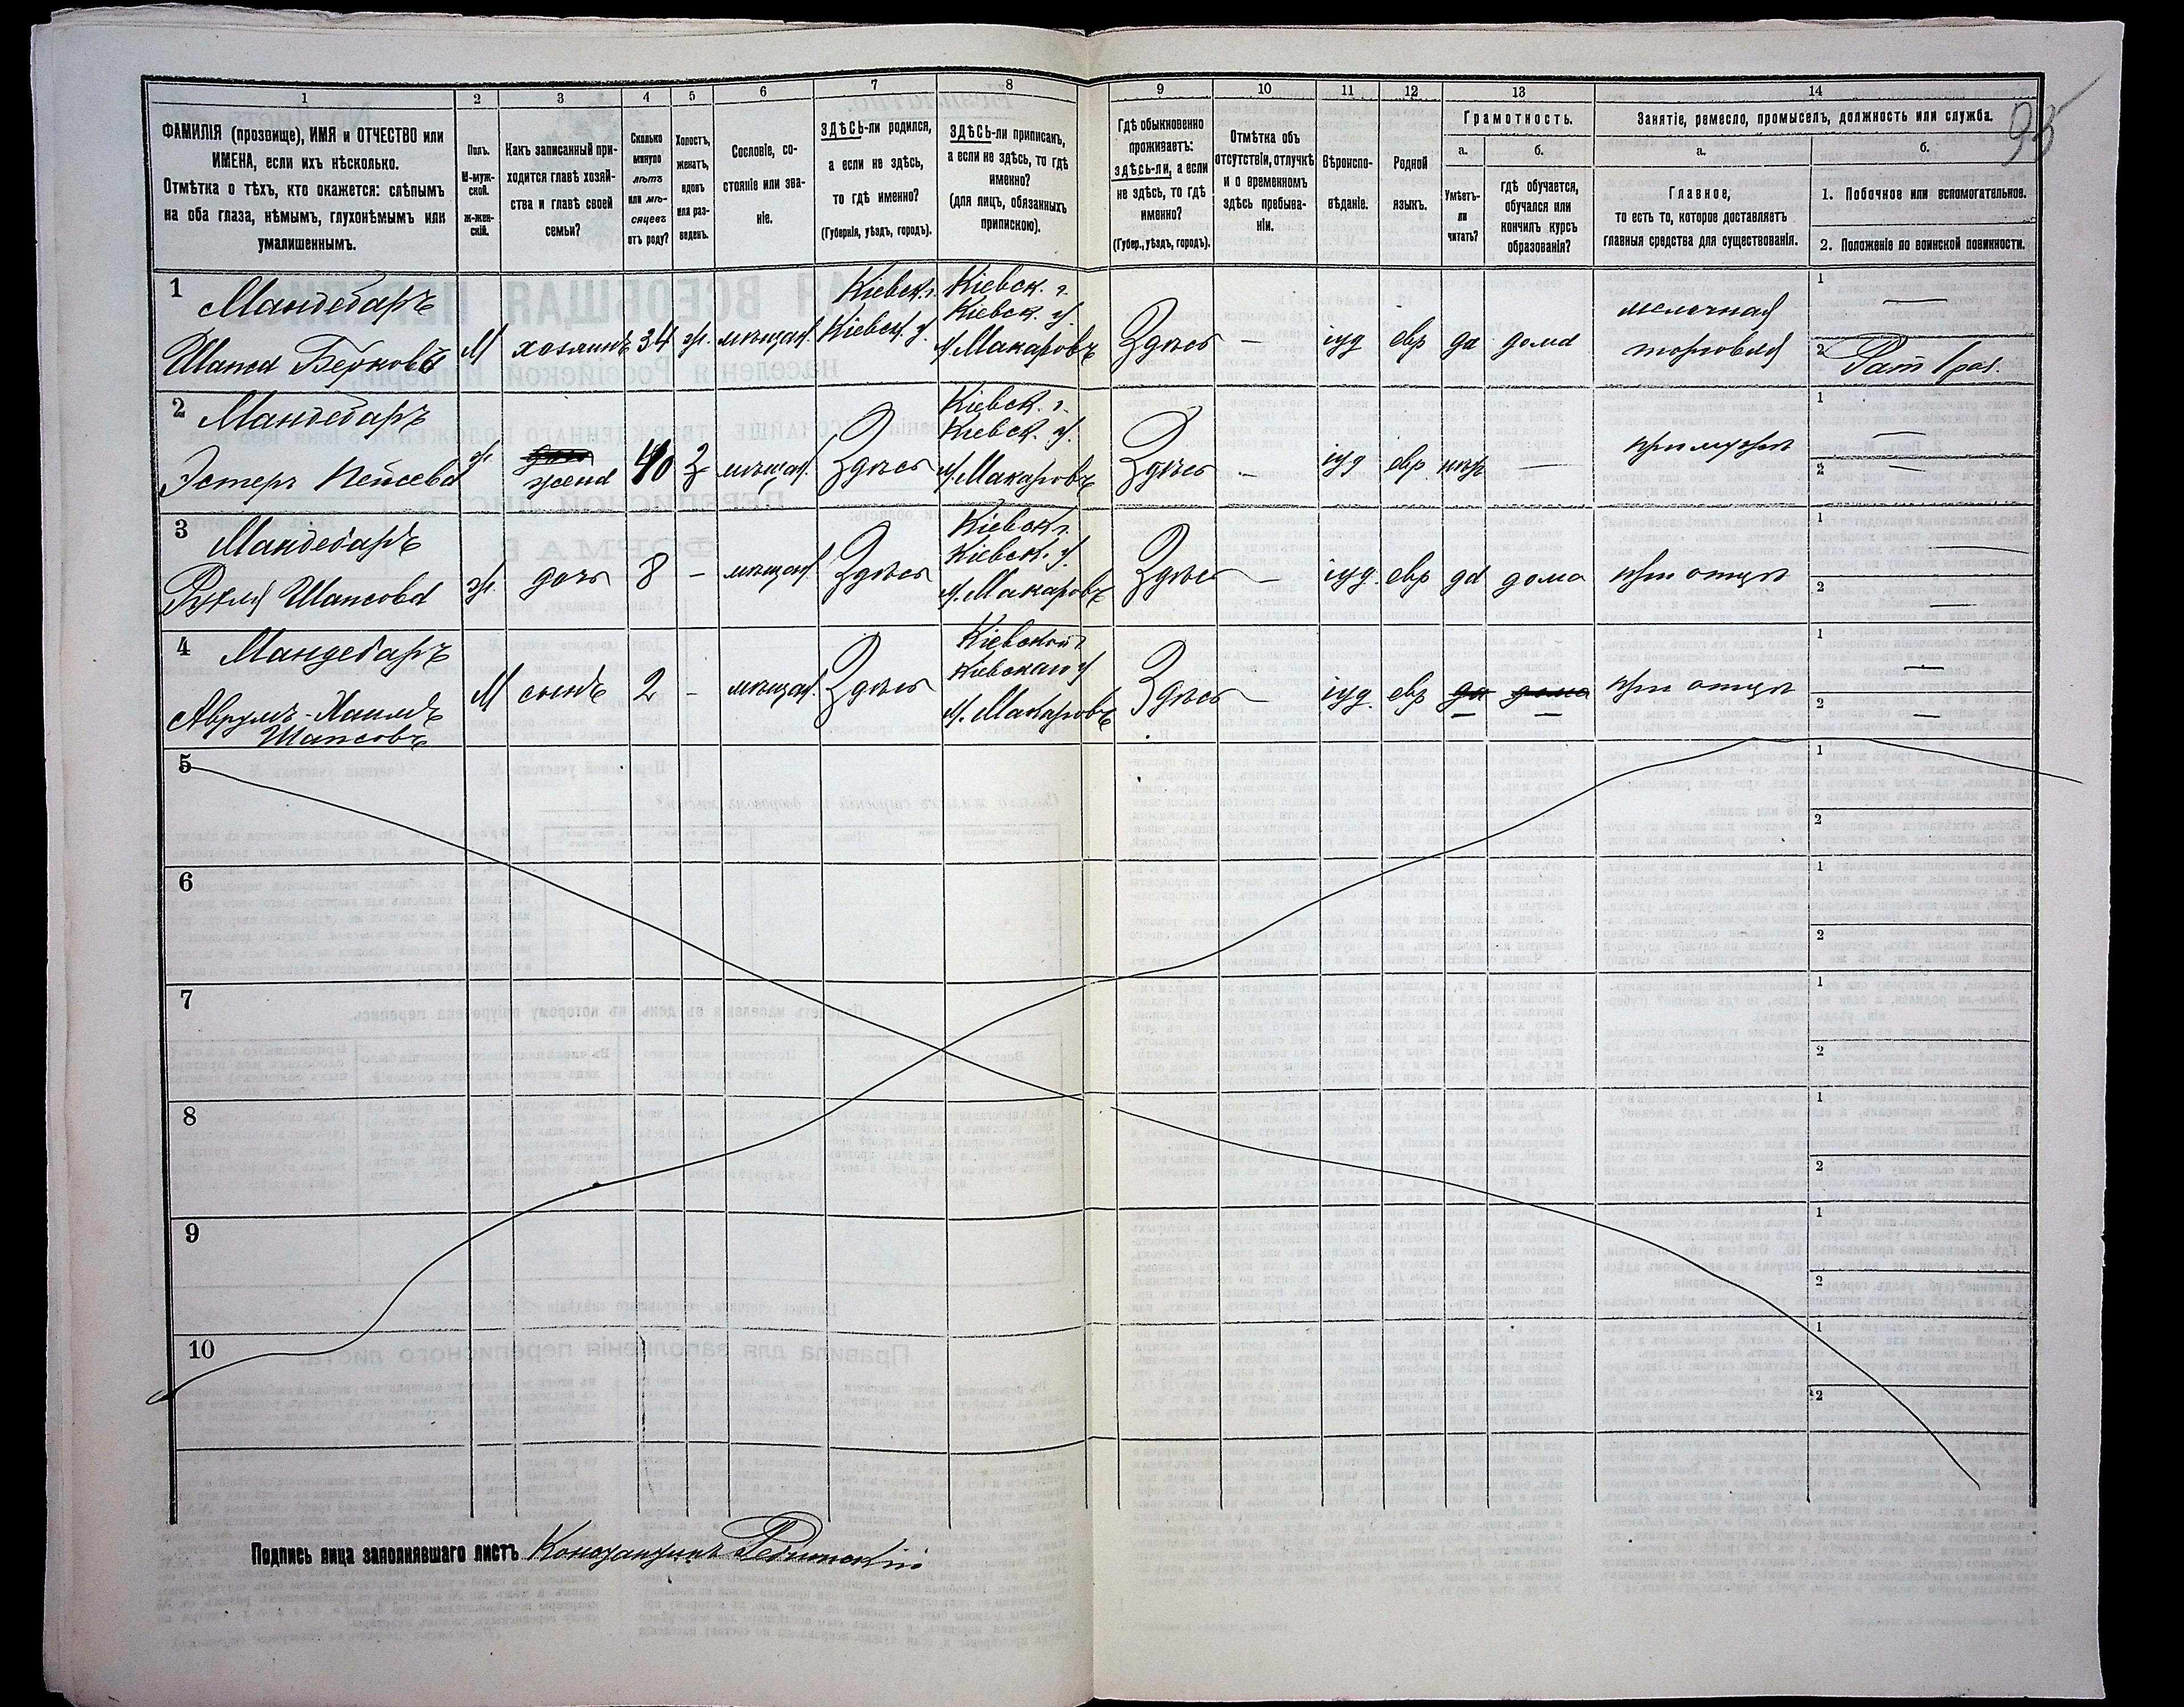 95
1 2 3 4 5 6 7 8 9 10 11 12 13 14
ФАМИЛІЯ (прозвище), ИМЯ и ОТЧЕСТВО или
ИМЕНА, если ихъ нѣсколько.
Отмѣтка о тѣхъ, кто окажется: слѣпымъ
на оба глаза, нѣмымъ, глухонѣмымъ или
умалишеннымъ.
Полъ.
М-муж-
ской.
Ж-жен-
скій.
Какъ записанный при-
ходится главѣ хозяй-
ства и главѣ своей
семьи?
Сколько
минуло
лѣтъ
или мѣ-
сяцевъ
отъ роду?
Холостъ,
женатъ,
вдовъ
или раз-
веденъ.
Сословіе, со-
стояніе или зва-
ніе.
ЗДѢСЬ-ли родился,
а если не здѣсь,
то гдѣ именно?
(Губернія, уѣздъ, городъ).
ЗДѢСЬ-ли приписанъ,
а если не здѣсь, то гдѣ
именно?
(для лицъ, обязанныхъ
припискою).
Гдѣ обыкновенно
проживаетъ:
здѣсь-ли, а если
не здѣсь, то гдѣ
именно?
(Губер., уѣздъ, городъ).
Отмѣтка объ
отсутствіи, отлучкѣ
и о временномъ
здѣсь пребыва-
ніи.
Вѣроиспо-
вѣданіе.
Родной
языкъ.
Грамотность.
а.
Умѣетъ-
ли
читать?
б.
гдѣ обучается,
обучался или
кончилъ курсъ
образованія?
Занятіе, ремесло, промыселъ, должность или служба.
а.
Главное,
то есть то, которое доставляетъ
главныя средства для существованія.
б.
1. Побочное или вспомогательное.
2. Положеніе по воинской повинности.
1 Мандебаръ
Шапса Берковъ
М хозяинъ 34 ж. мѣщан.
Кіевск. г.
Кіевск. у.
Кіевск. г.
Кіевск. у.
м. Макаровъ
Здѣсь — іуд евр да дома
мелочная
торговля
1 —
2 Рат 1 раз.
2 Мандебаръ
Эстеръ Пейсева
ж жена 40 З мѣщан. Здѣсь
Кіевск. г.
Кіевск. у.
м. Макаровъ
Здѣсь — іуд евр нѣтъ — при мужѣ
1 —
2 —
3 Мандебаръ
Рухля Шапсова
ж. дочь 8 — мѣщан. Здѣсь
Кіевск. г.
Кіевск. у.
м. Макаровъ
Здѣсь — іуд. евр да дома при отцѣ
1 —
2 —
4 Мандебаръ
Аврумъ-Хаимъ
Шапсовъ
М сынъ 2 – мѣщан. Здѣсь
Кіевской г
Кіевскаго у
м. Макаровъ
Здѣсь — іуд. евр да дома при отцѣ
— —
1 —
2 —
5
1
2
6
1
2
7
1
2
8
1
2
9
1
2
10
1
2
Подпись лица заполнявшаго листъ